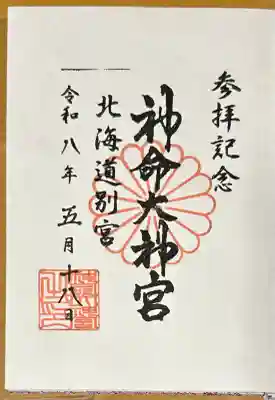 参拝記念
神命大神宮
北海道別宮
令和八年 五月十八日